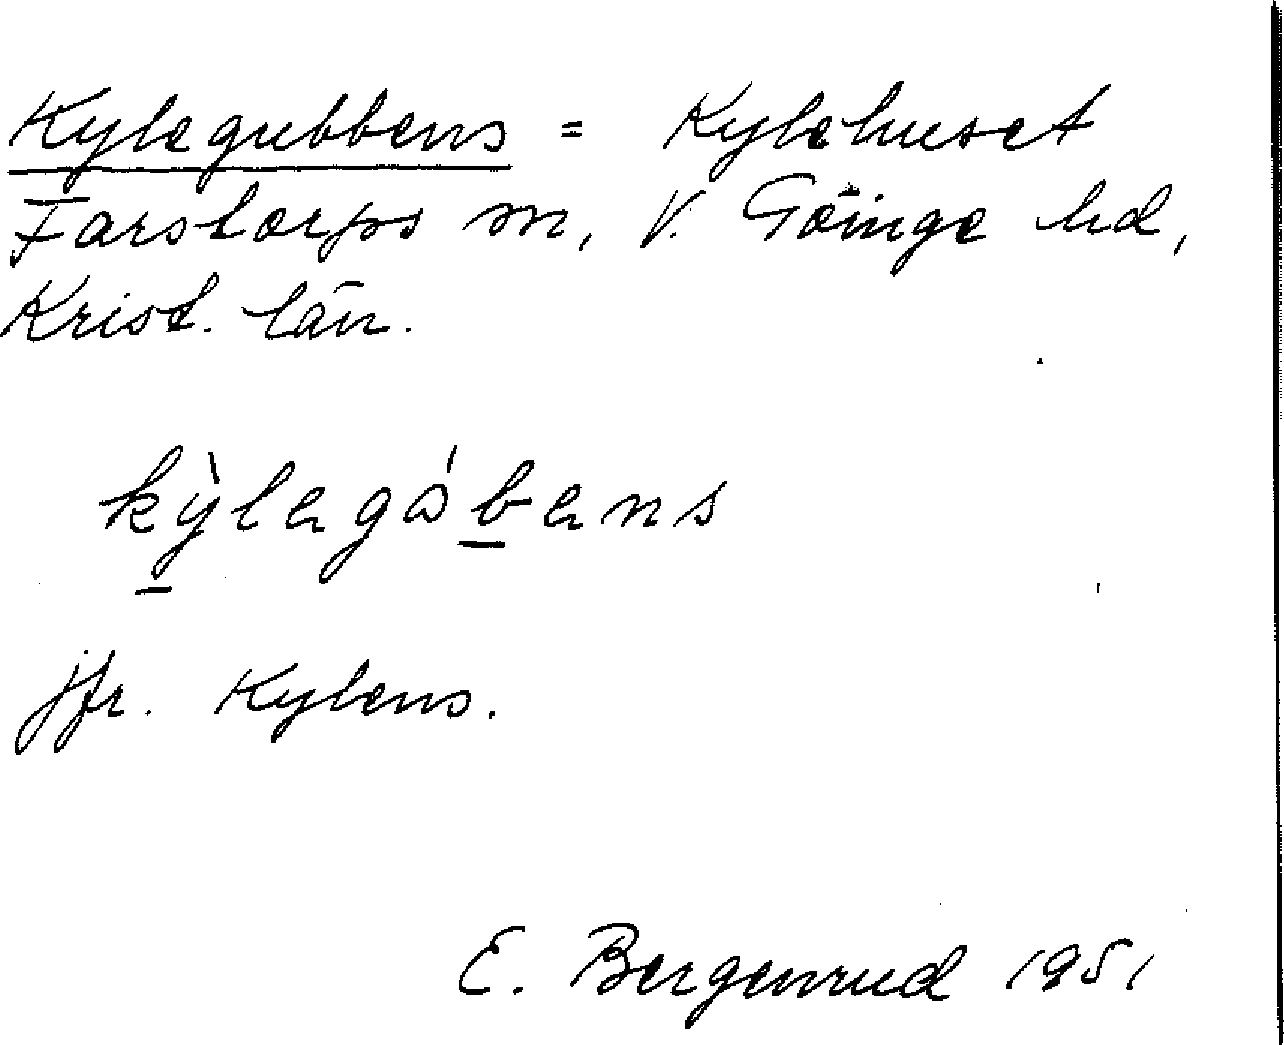 Kylegubbens = Kylehuset
Farstorps sn, V. Göinge hd,
Krist. län.
kỳlegåb́ens
jfr. Kylens.
E. Bergenrud 1951